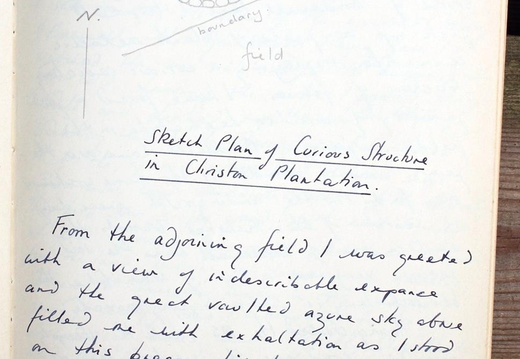 N.
boundary.
field
Sketch Plan of Curious Structure
in Christon Plantation.
From the adjoining field I was greeted
with a view of indescribable expance
and the great vaulted azure sky above
filled me with exhaltation as I stood
on this